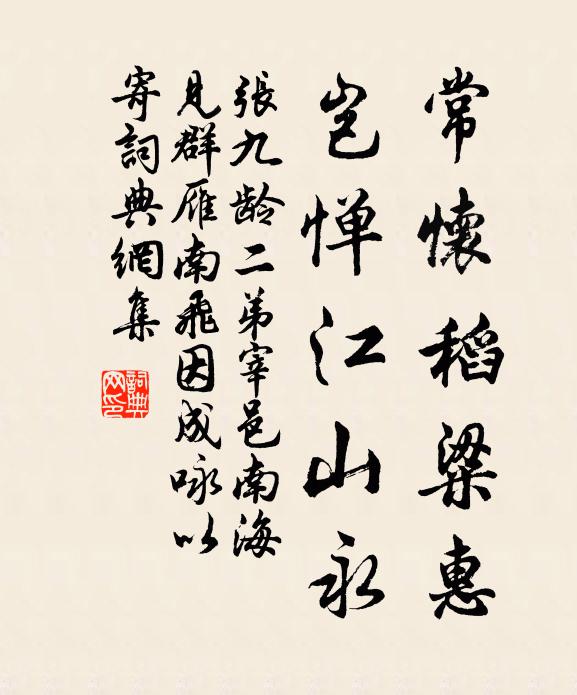 常懷稻粱惠
豈惮江山永
張九龄二弟宰邑南海
見群雁南飛因成咏以
寄詞典網集
詞典
网印